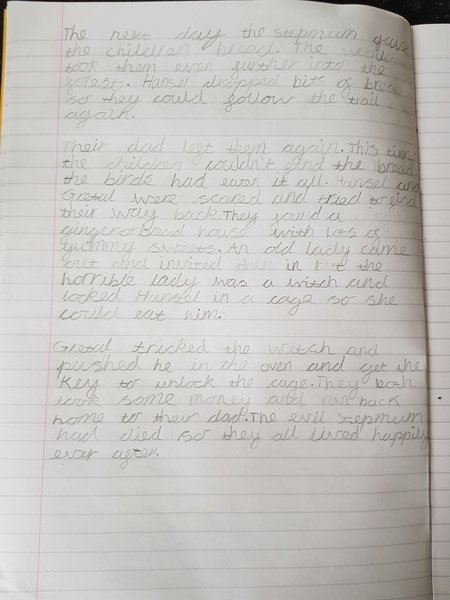 The next day the stepmum gave
the children bread. The
took them even further into the
forest. Hansel dropped bits of
so they could follow the trail
again.
Their dad left them again. This time
the children couldn't find the bread
the birds had eaten it all. Hansel and
Gretal were scared and tried to find
their way back. They found a
gingerbread house with lots of
yummy sweets. An old lady came
out and invited them in but the
horrible lady was a witch and
locked Hansel in a cage so she
could eat him.
Gretal tricked the witch and
pushed he in the oven and get the
key to unlock the cage. They both
took some money and ran back
home to their dad. The evil stepmum
had died so they all lived happily
ever after.